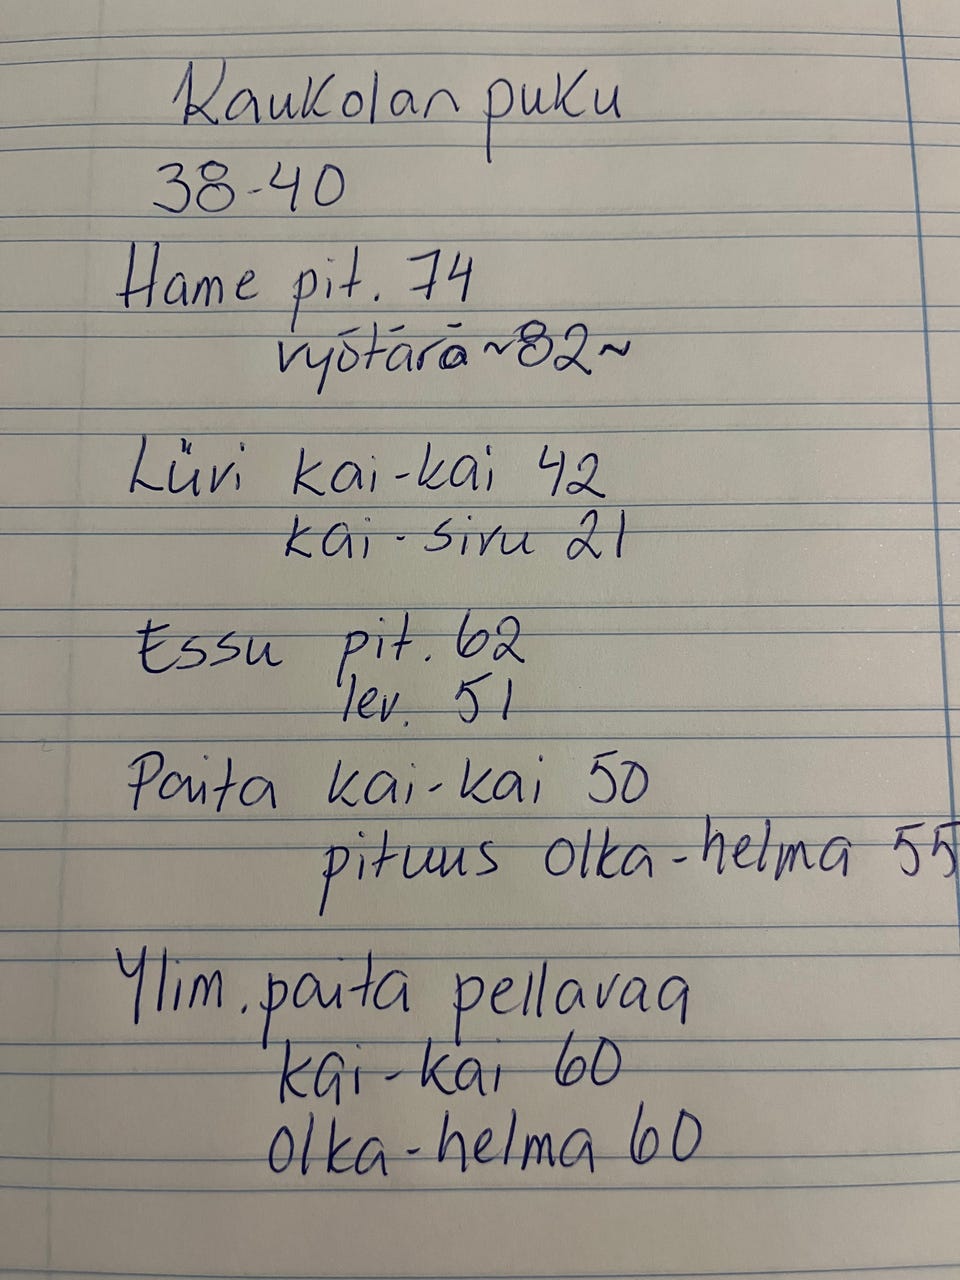 Kaukolan puku
38-40
Hame pit. 74
vyötärö ~82~
Liivi kai-kai 42
kai-sivu 21
Essu pit. 62
lev. 51
Paita kai-kai 50
pituus olka-helma 55
Ylim. paita pellavaa
kai-kai 60
olka-helma 60